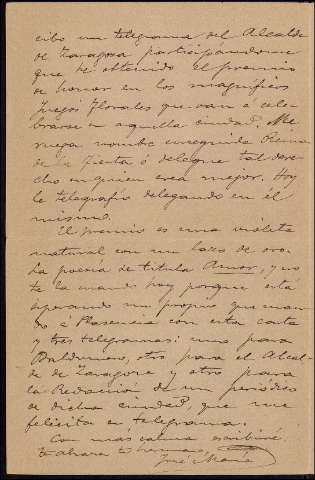 cibo un telegrama del Alcalde
de Zaragoza participandome
que he obtenido el premio
de honor en los magníficos
Juegos Florales que van á cele-
brarse en aquella ciudad. Me
ruega nombre enseguida Reina
de la Fiesta ó delegue tal dere-
cho en quien crea mejor. Hoy
le telegrafío delegando en él
mismo.
El premio es una violeta
natural con un lazo de oro.
La poesía se titula Amor, y no
te la mando hoy porque está
esperando un propio que man-
do á Plasencia con esta carta
y tres telegramas: uno para
Baldomero, otro para el Alcal-
de de Zaragoza y otro para
la Redacción de un periódico
de dicha ciudad, que me
felicita en telegrama.
Con más calma escribiré.
Te abraza tu hermano,
José María